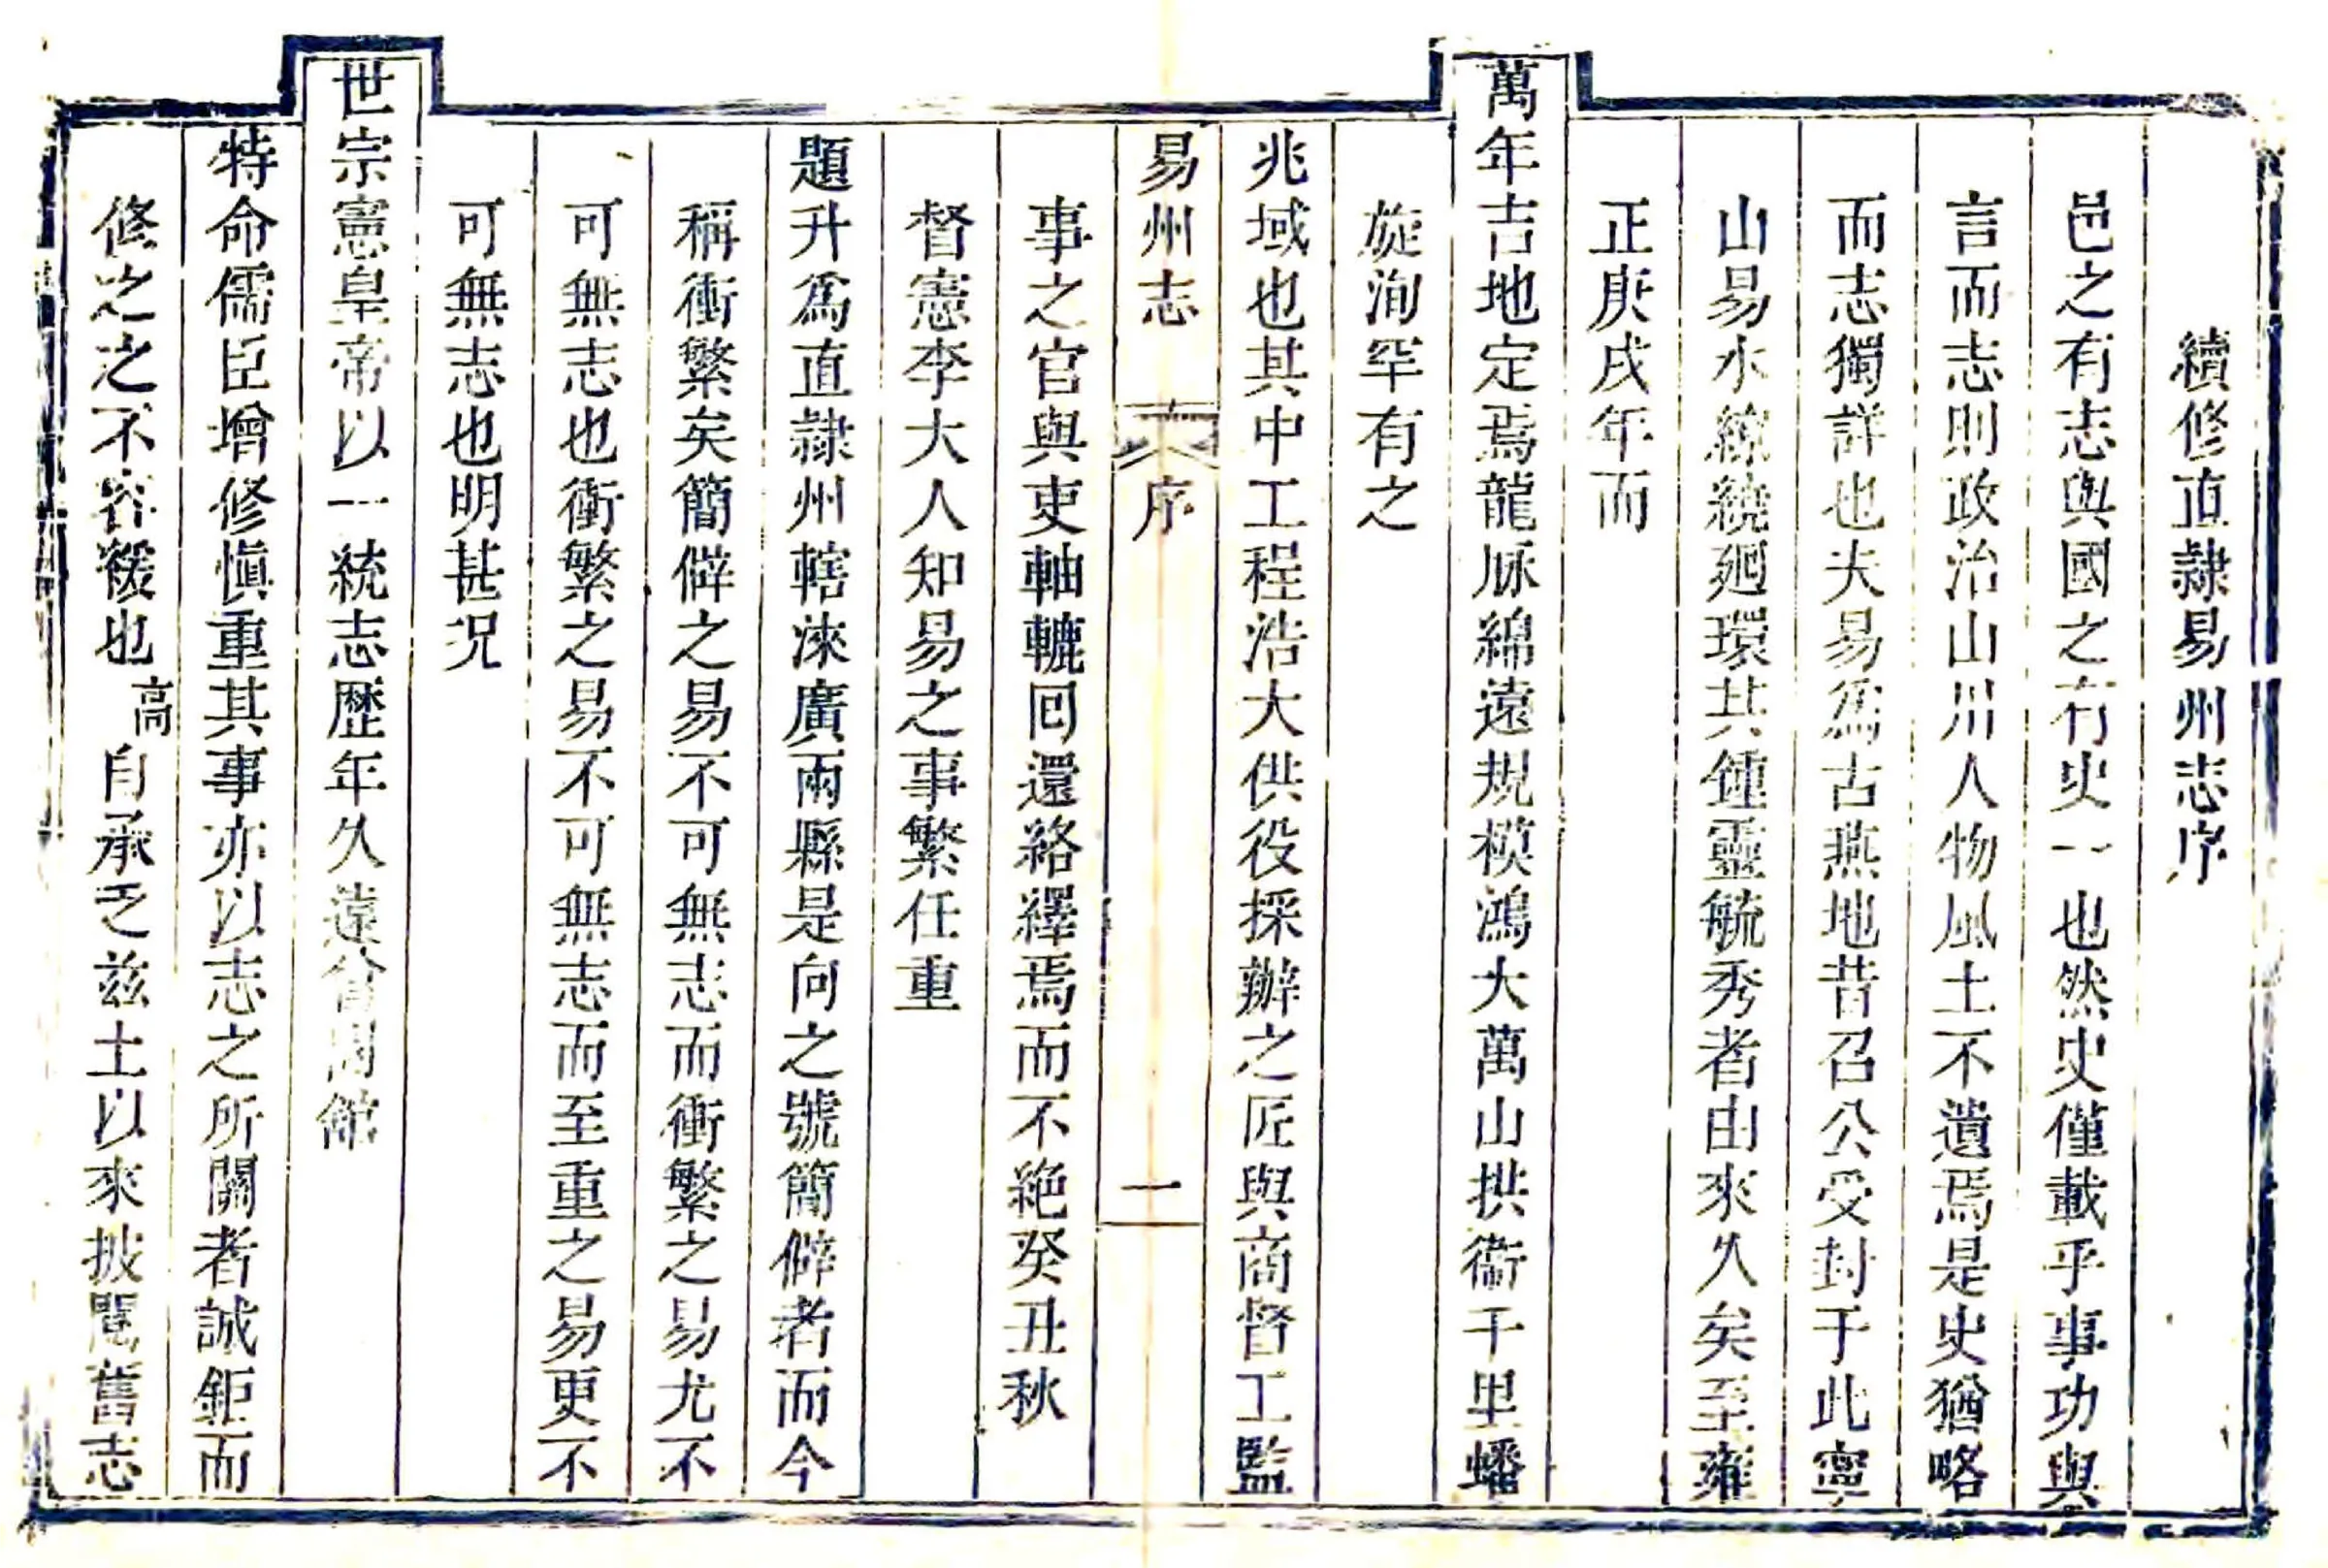 續修直隸易州志序
邑之有志與國之有史一也然史僅載乎事功與
言而志則政治山川人物風土不遺焉是史猶略
而志獨詳也夫易爲古燕地昔召公受封于此寧
山易水繚繞廻環其鍾靈毓秀者由來久矣至雍
正庚戌年而
萬年吉地定焉龍脈綿遠規模鴻大萬山拱衞千里蟠
旋洵罕有之
兆域也其中工程浩大供役採辦之匠與商督工監
易州志 序 一
事之官與吏軸轆回還絡繹焉而不絶癸丑秋
督憲李大人知易之事繁任重
題升爲直隸州轄淶廣兩縣是向之號簡僻者而今
稱衝繁矣簡僻之易不可無志而衝繁之易尤不
可無志也衝繁之易不可無志而至重之易更不
可無志也明甚况
世宗憲皇帝以一統志歷年久遠曾開館
特命儒臣增修愼重其事亦以志之所關者誠鉅而
修之之不容緩也高自承乏兹土以來披閱舊志